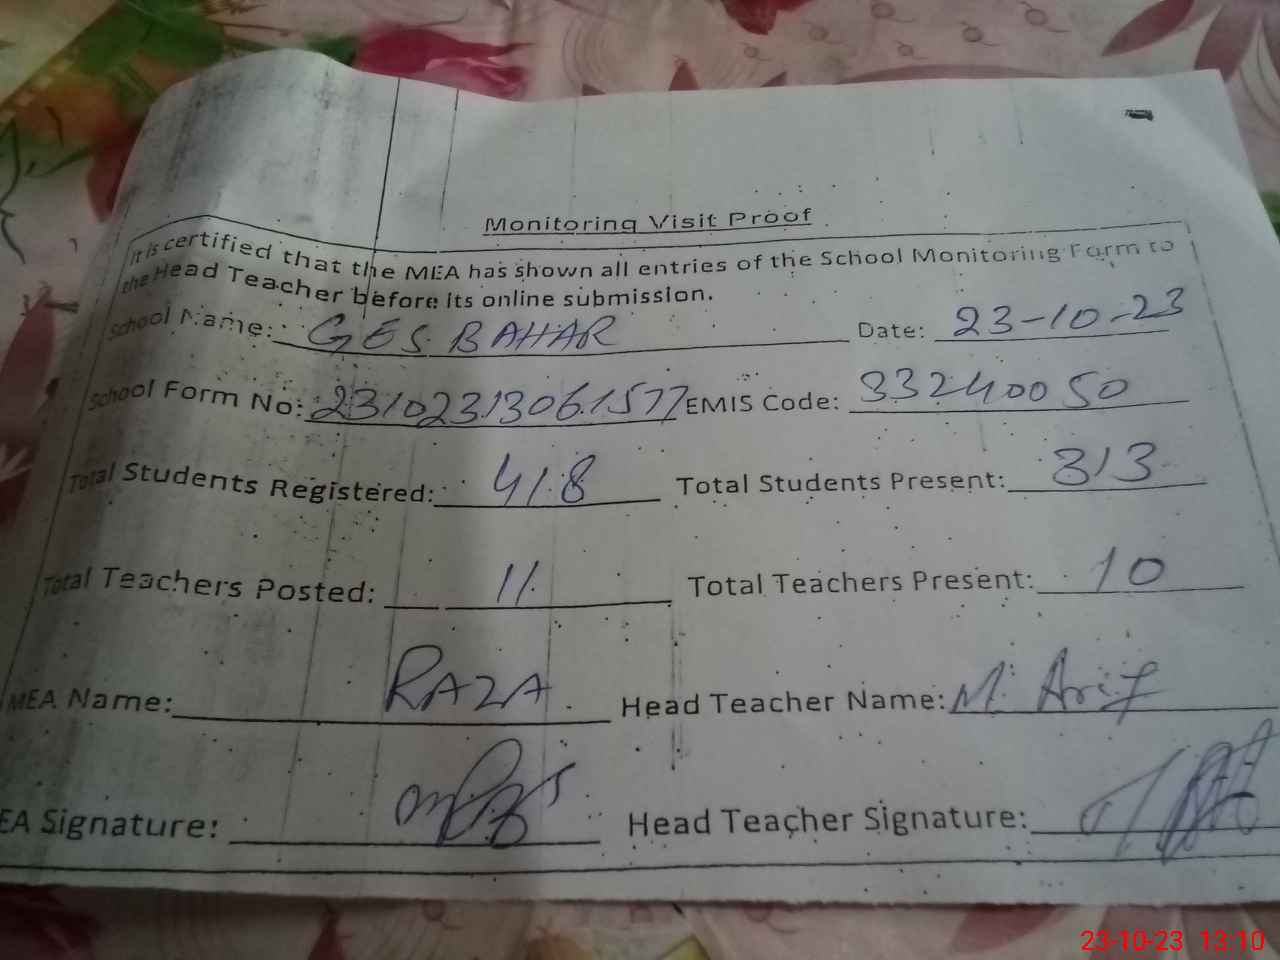 Monitoring Visit Proof
It is certified that the MEA has shown all entries of the School Monitoring Form to
the Head Teacher before its online submission.
School Name: GES BAHAR Date: 23-10-23
School Form No: 23102313061577 EMIS Code: 33240050
Total Students Registered: 418 Total Students Present: 313
Total Teachers Posted: 11 Total Teachers Present: 10
MEA Name: RAZA Head Teacher Name: M. Arif
EA Signature: Head Teacher Signature:
23-10-23 13:10